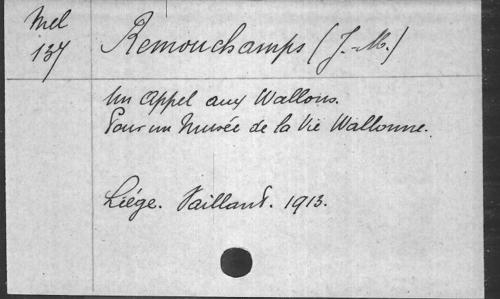 Mel
137
Remouchamps (J.-M.)
Un Appel aux Wallons.
Pour un Musée de la Vie Wallonne.
Liége. Vaillant. 1913.